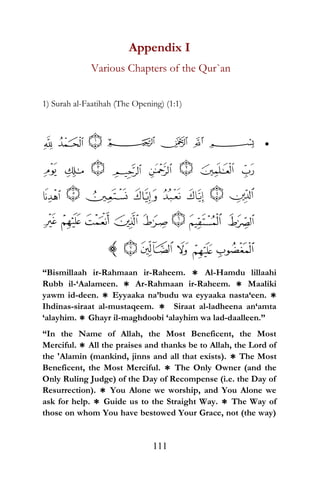 Appendix I
Various Chapters of the Qur`an
1) Surah al-Faatihah (The Opening) (1:1)
• بِسْمِ ٱللَّهِ ٱلرَّحْمَٰنِ ٱلرَّحِيمِ ۝١ ٱلْحَمْدُ لِلَّهِ
رَبِّ ٱلْعَٰلَمِينَ ۝٢ ٱلرَّحْمَٰنِ ٱلرَّحِيمِ ۝٣ مَٰلِكِ يَوْمِ
ٱلدِّينِ ۝٤ إِيَّاكَ نَعْبُدُ وَإِيَّاكَ نَسْتَعِينُ ۝٥ ٱهْدِنَا
ٱلصِّرَٰطَ ٱلْمُسْتَقِيمَ ۝٦ صِرَٰطَ ٱلَّذِينَ أَنْعَمْتَ عَلَيْهِمْ غَيْرِ
ٱلْمَغْضُوبِ عَلَيْهِمْ وَلَا ٱلضَّآلِّينَ ۝٧ ﴾
“Bismillaah ir-Rahmaan ir-Raheem. ∗ Al-Hamdu lillaahi
Rubb il-‘Aalameen. ∗ Ar-Rahmaan ir-Raheem. ∗ Maaliki
yawm id-deen. ∗ Eyyaaka na’budu wa eyyaaka nasta‘een. ∗
Ihdinas-siraat al-mustaqeem. ∗ Siraat al-ladheena an‘amta
‘alayhim. ∗ Ghayr il-maghdoobi ‘alayhim wa lad-daalleen.”
“In the Name of Allah, the Most Beneficent, the Most
Merciful. ∗ All the praises and thanks be to Allah, the Lord of
the 'Alamin (mankind, jinns and all that exists). ∗ The Most
Beneficent, the Most Merciful. ∗ The Only Owner (and the
Only Ruling Judge) of the Day of Recompense (i.e. the Day of
Resurrection). ∗ You Alone we worship, and You Alone we
ask for help. ∗ Guide us to the Straight Way. ∗ The Way of
those on whom You have bestowed Your Grace, not (the way)
111